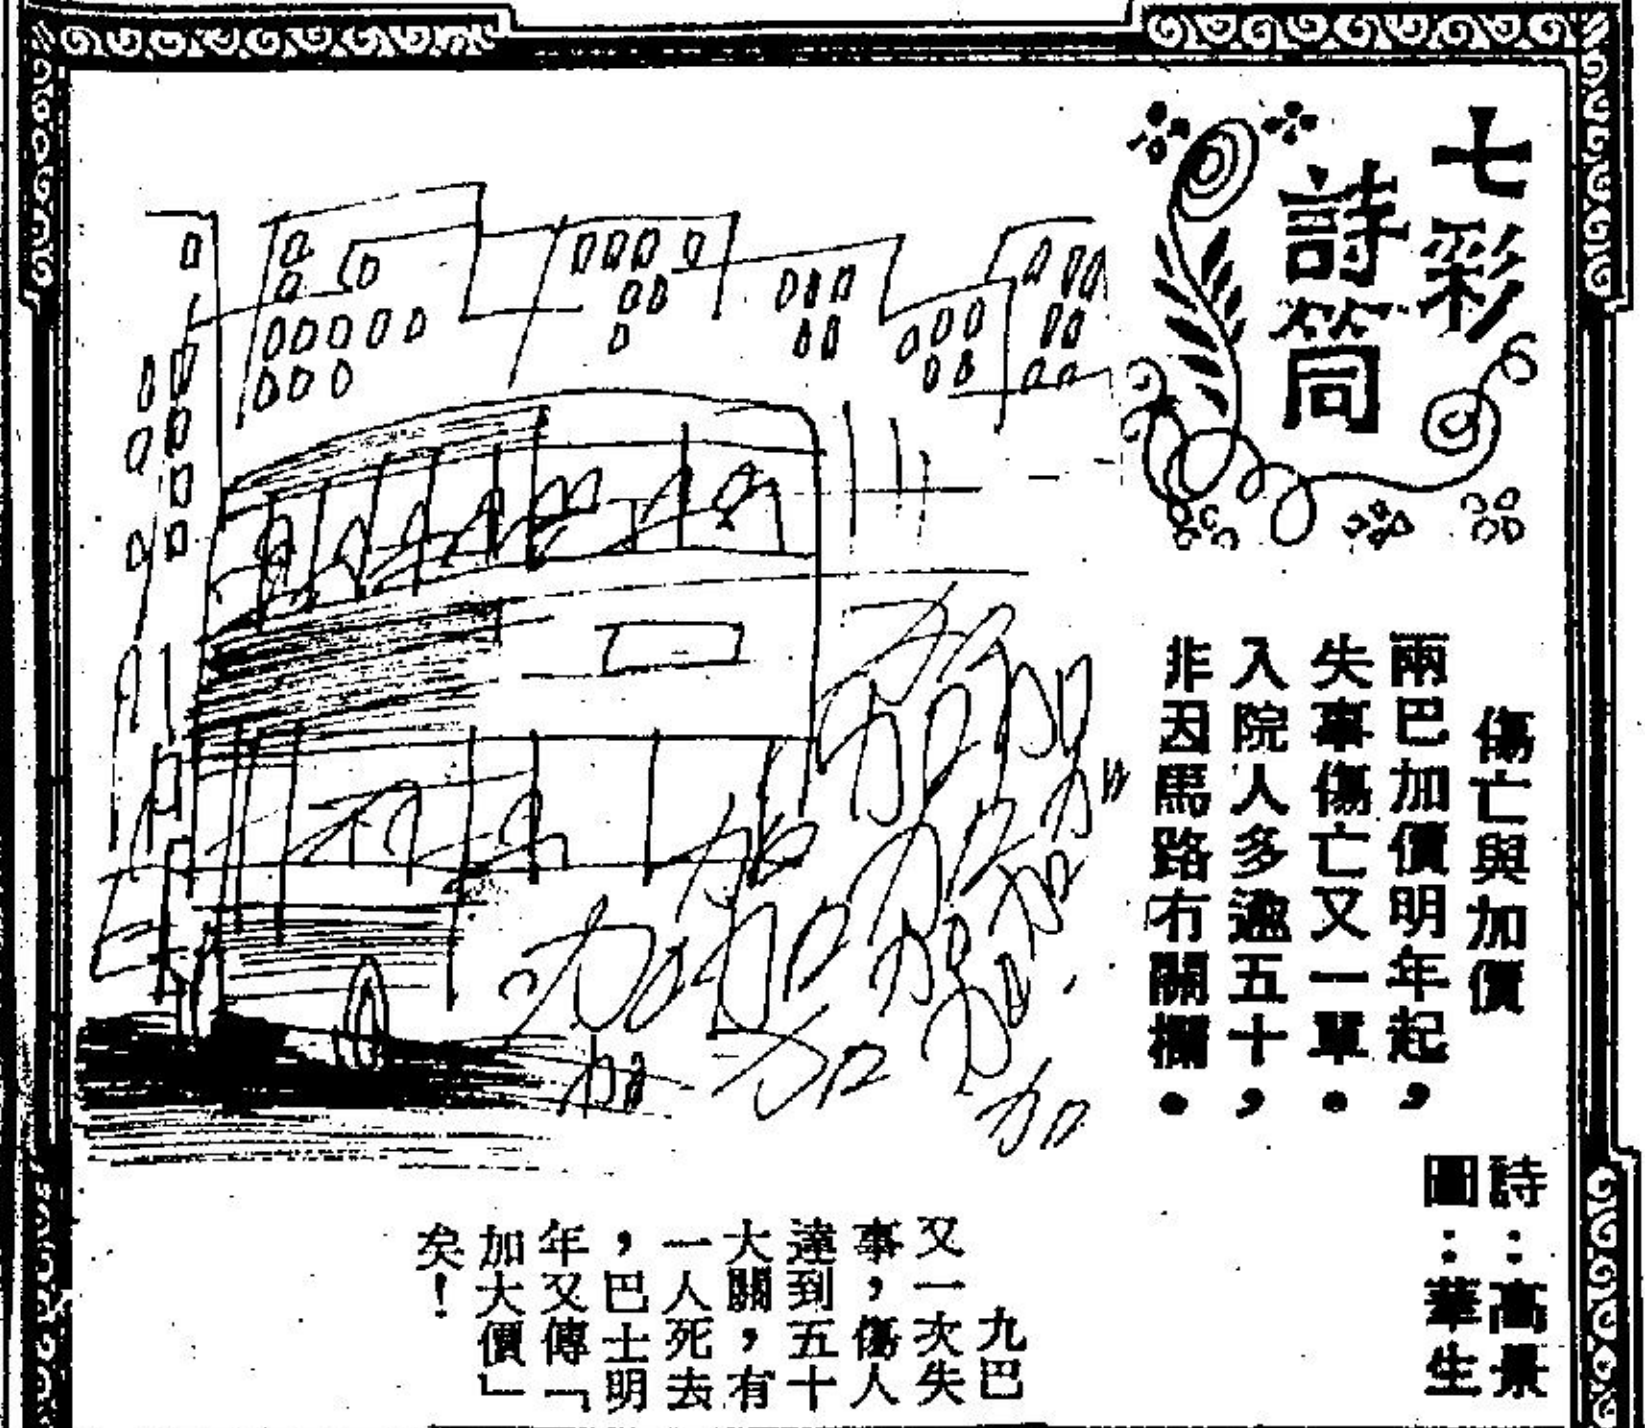 七彩
詩筒
傷亡與加價
兩巴加價明年起，
失事傷亡又一單．
入院人多逾五十，
非因馬路冇關欄．
詩：高景
圖：華生
加
加
加
加
加
加
加
加
加
加
加
加
加
加
九巴
又一次失
事，傷人
達到五十
大關，有
一人死去
，巴士明
年又傳「
加大價」
矣！